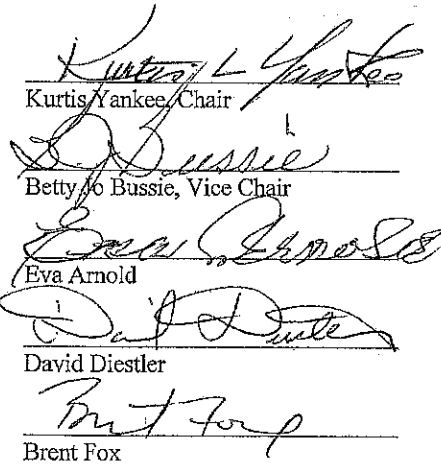 Kurtis L Yankee
Kurtis Yankee, Chair
BJ Bussie
Betty Jo Bussie, Vice Chair
Eva Arnold
Eva Arnold
David Diestler
David Diestler
Brent Fox
Brent Fox